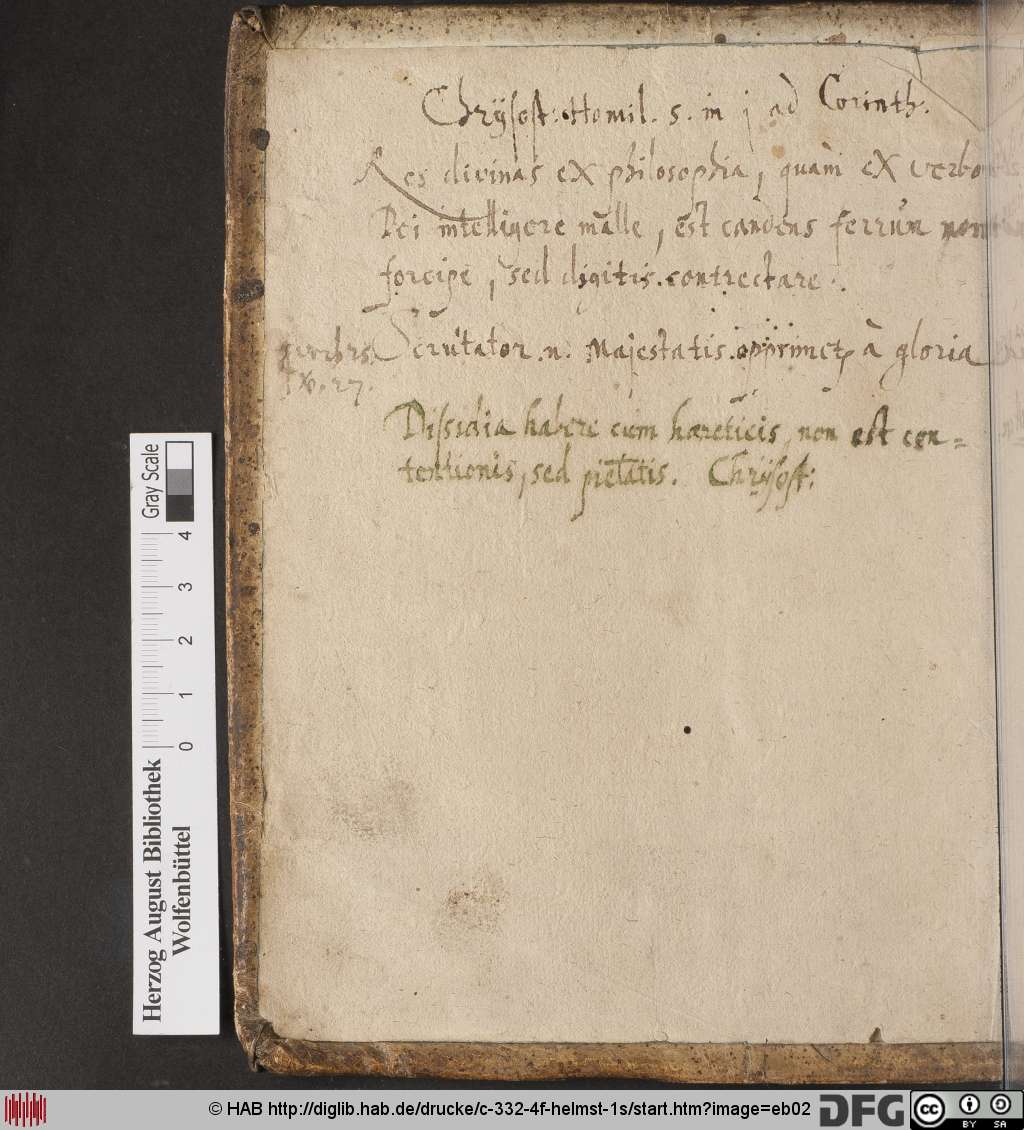 Chrÿsost: Homil. 5. in j ad Corinth.
Res divinas ex philosophia, quàm ex verbo
Dei intelligere malle, est candens ferrum non
forcipe, sed digitis contrectare.
Scrutator .n. Majestatis opprimet, à gloria
25. 27.
Dissidia habere cum hæreticis, non est con=
tentionis, sed pietatis. Chrÿsost:
Gray Scale
4
3
2
1
0
Herzog August Bibliothek
Wolfenbüttel
© HAB http://diglib.hab.de/drucke/c-332-4f-helmst-1s/start.htm?image=eb02
DFG
cc
BY SA